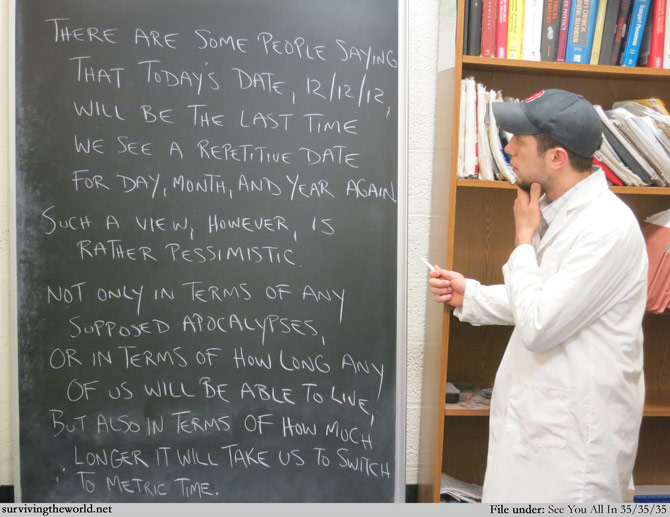 THERE ARE SOME PEOPLE SAYING
THAT TODAY'S DATE, 12/12/12,
WILL BE THE LAST TIME
WE SEE A REPETITIVE DATE
FOR DAY, MONTH, AND YEAR AGAIN.
SUCH A VIEW, HOWEVER, IS
RATHER PESSIMISTIC.
NOT ONLY IN TERMS OF ANY
SUPPOSED APOCALYPSES,
OR IN TERMS OF HOW LONG ANY
OF US WILL BE ABLE TO LIVE,
BUT ALSO IN TERMS OF HOW MUCH
LONGER IT WILL TAKE US TO SWITCH
TO METRIC TIME.
survivingtheworld.net
File under: See You All In 35/35/35